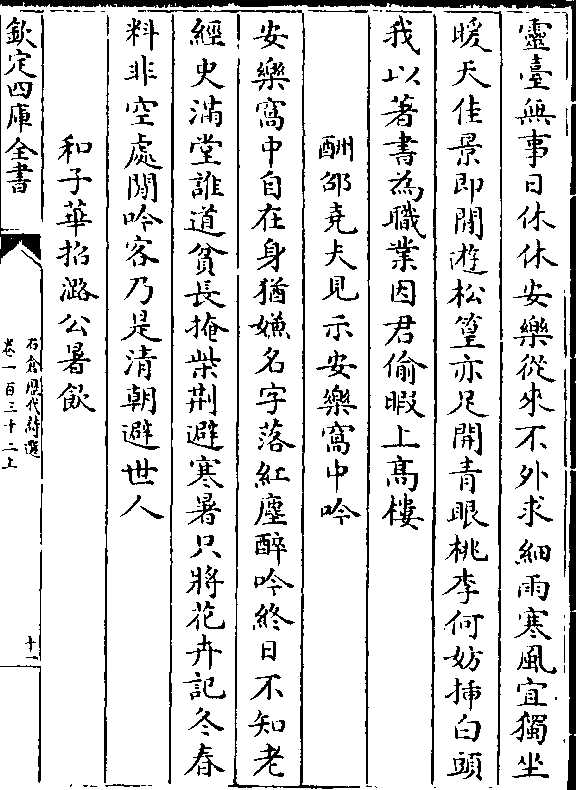 靈臺無事日休休安樂從來不外求細雨寒風宜獨坐
暖天佳景即閒遊松篁亦足開青眼桃李何妨揷白頭
我以著書為職業因君偷暇上髙樓
酬邵堯夫見示安樂窩中吟
安樂窩中自在身猶嫌名字落紅塵醉吟終日不知老
經史滿堂誰道貧長掩柴荆避寒暑只將花卉記冬春
料非空處閒吟客乃是清朝避世人
和子華招潞公暑飲
欽定四庫全書
石倉歴代詩選
卷一百三十二上
十一